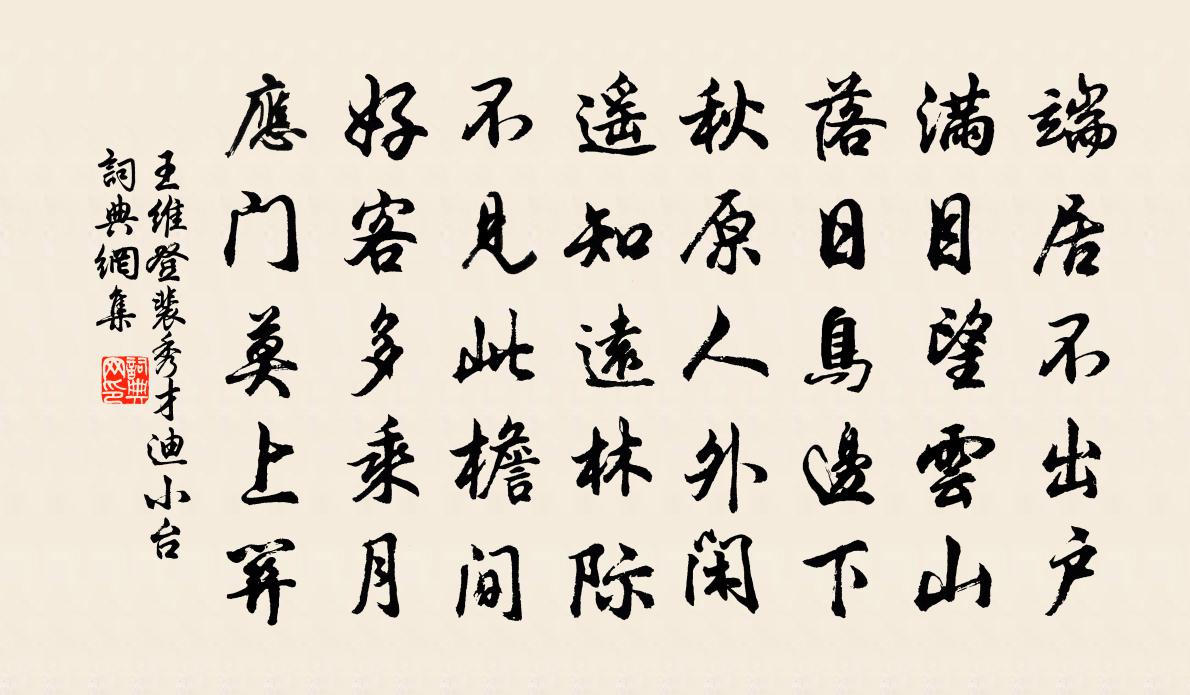 端居不出户
满目望雲山
落日鳥邊下
秋原人外闲
遥知遠林际
不見此檐间
好客多乘月
應门莫上関
王維登裴秀才迪小台
詞典網集
詞典网印